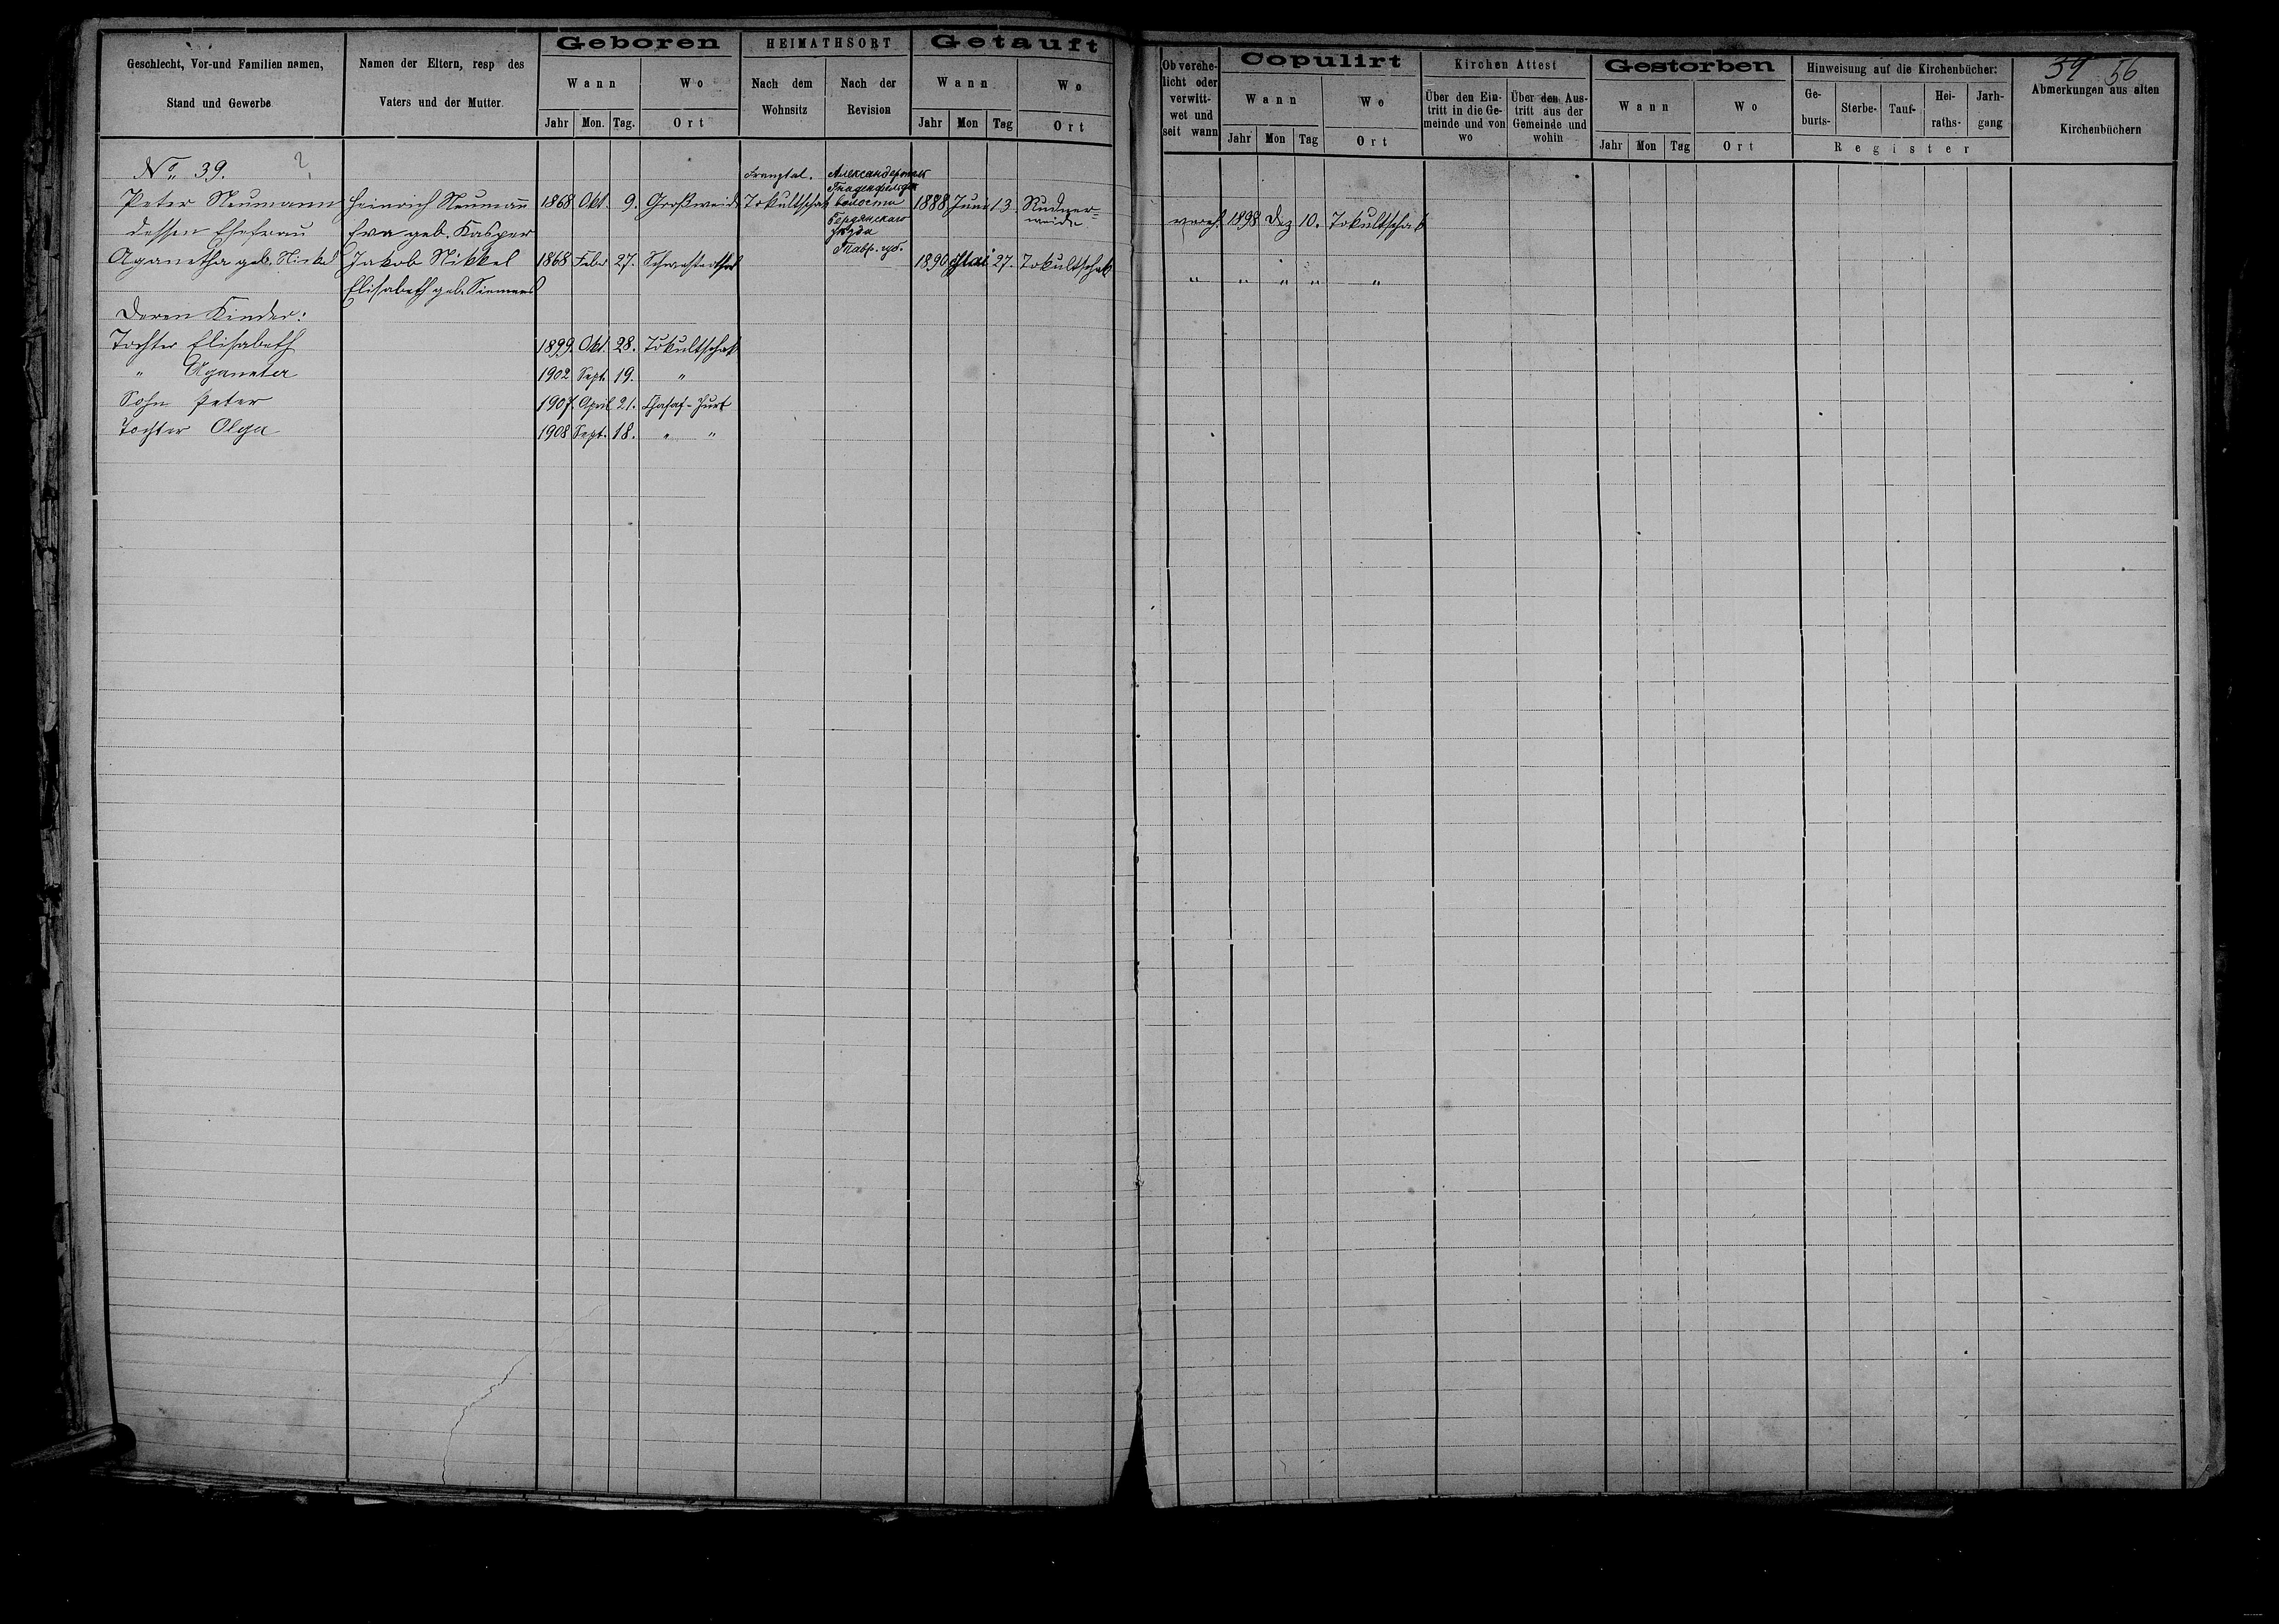 Geschlecht, Vor-und Familien namen,
Stand und Gewerbe
Namen der Eltern, resp des
Vaters und der Mutter.
Geboren
Wann
Wo
Jahr Mon. Tag. Ort
HEIMATHSORT
Nach dem
Wohnsitz
Nach der
Revision
Getauft
Wann
Wo
Jahr Mon Tag Ort
Ob verehe-
licht oder
verwitt-
wet und
seit wann
Copulirt
Wann
Wo
Jahr Mon Tag Ort
Kirchen Attest
Über den Ein-
tritt in die Ge-
meinde und von
wo
Über den Aus-
tritt aus der
Gemeinde und
wohin
Gestorben
Wann
Wo
Jahr Mon Tag Ort
Hinweisung auf die Kirchenbücher:
Ge-
burts-
Sterbe-
Tauf-
Hei-
raths-
Jarh-
gang
Register
39 56
Abmerkungen aus alten
Kirchenbüchern
No. 39. ?
Franztal.
Peter Neumann Heinrich Neumann 1868 Okt. 9. Großweide Tokultschak 1888 Juni 13. Rudner-
weide
волости
Бердянскаго
уезда
Тавр. губ.
vereh. 1898 Dez 10. Tokultschak
dessen Ehefrau Eva geb. Kasper
Aganetha geb. Nickel Jakob Nikkel 1868 Febr 27. 1890 Mai 27. Tokultschak
" " " " "
Elisabeth geb. Siemens
Deren Kinder:
Tochter Elisabeth 1899. Okt. 28. Tokultschak
" Aganeta 1902 Sept. 19. "
Sohn Peter 1907. April 21. Chasaf-Jurt
Tochter Olga 1908 Sept. 18. " "